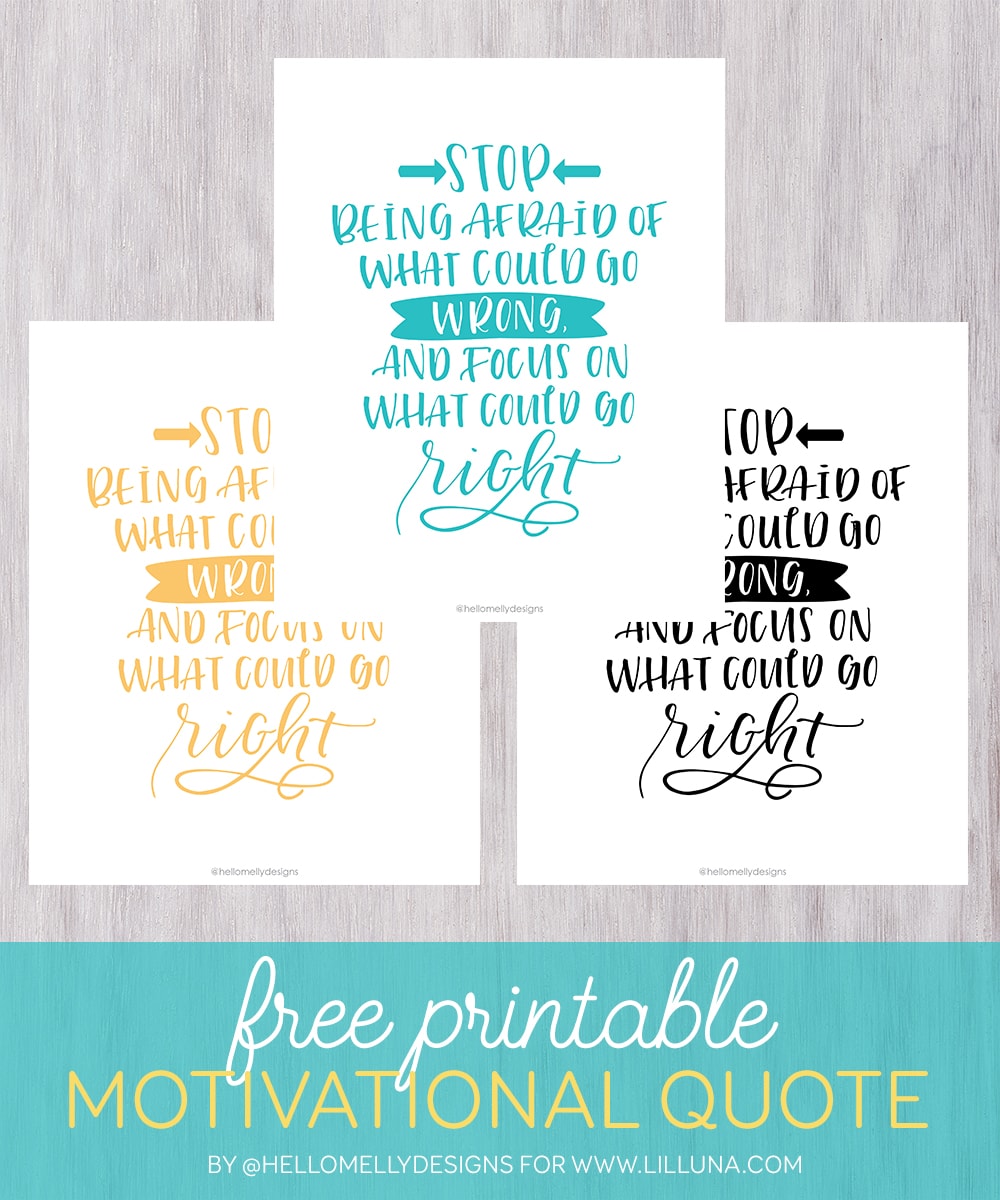 STOP
BEING AFRAID OF
WHAT COULD GO
WRONG,
AND FOCUS ON
WHAT COULD GO
right
@hellomellydesigns
STO
BEING AF
WHAT COU
WRON
AND FOCUS ON
WHAT COULD GO
right
@hellomellydesigns
TOP
AFRAID OF
COULD GO
RONG,
AND FOCUS ON
WHAT COULD GO
right
@hellomellydesigns
free printable
MOTIVATIONAL QUOTE
BY @HELLOMELLYDESIGNS FOR WWW.LILLUNA.COM